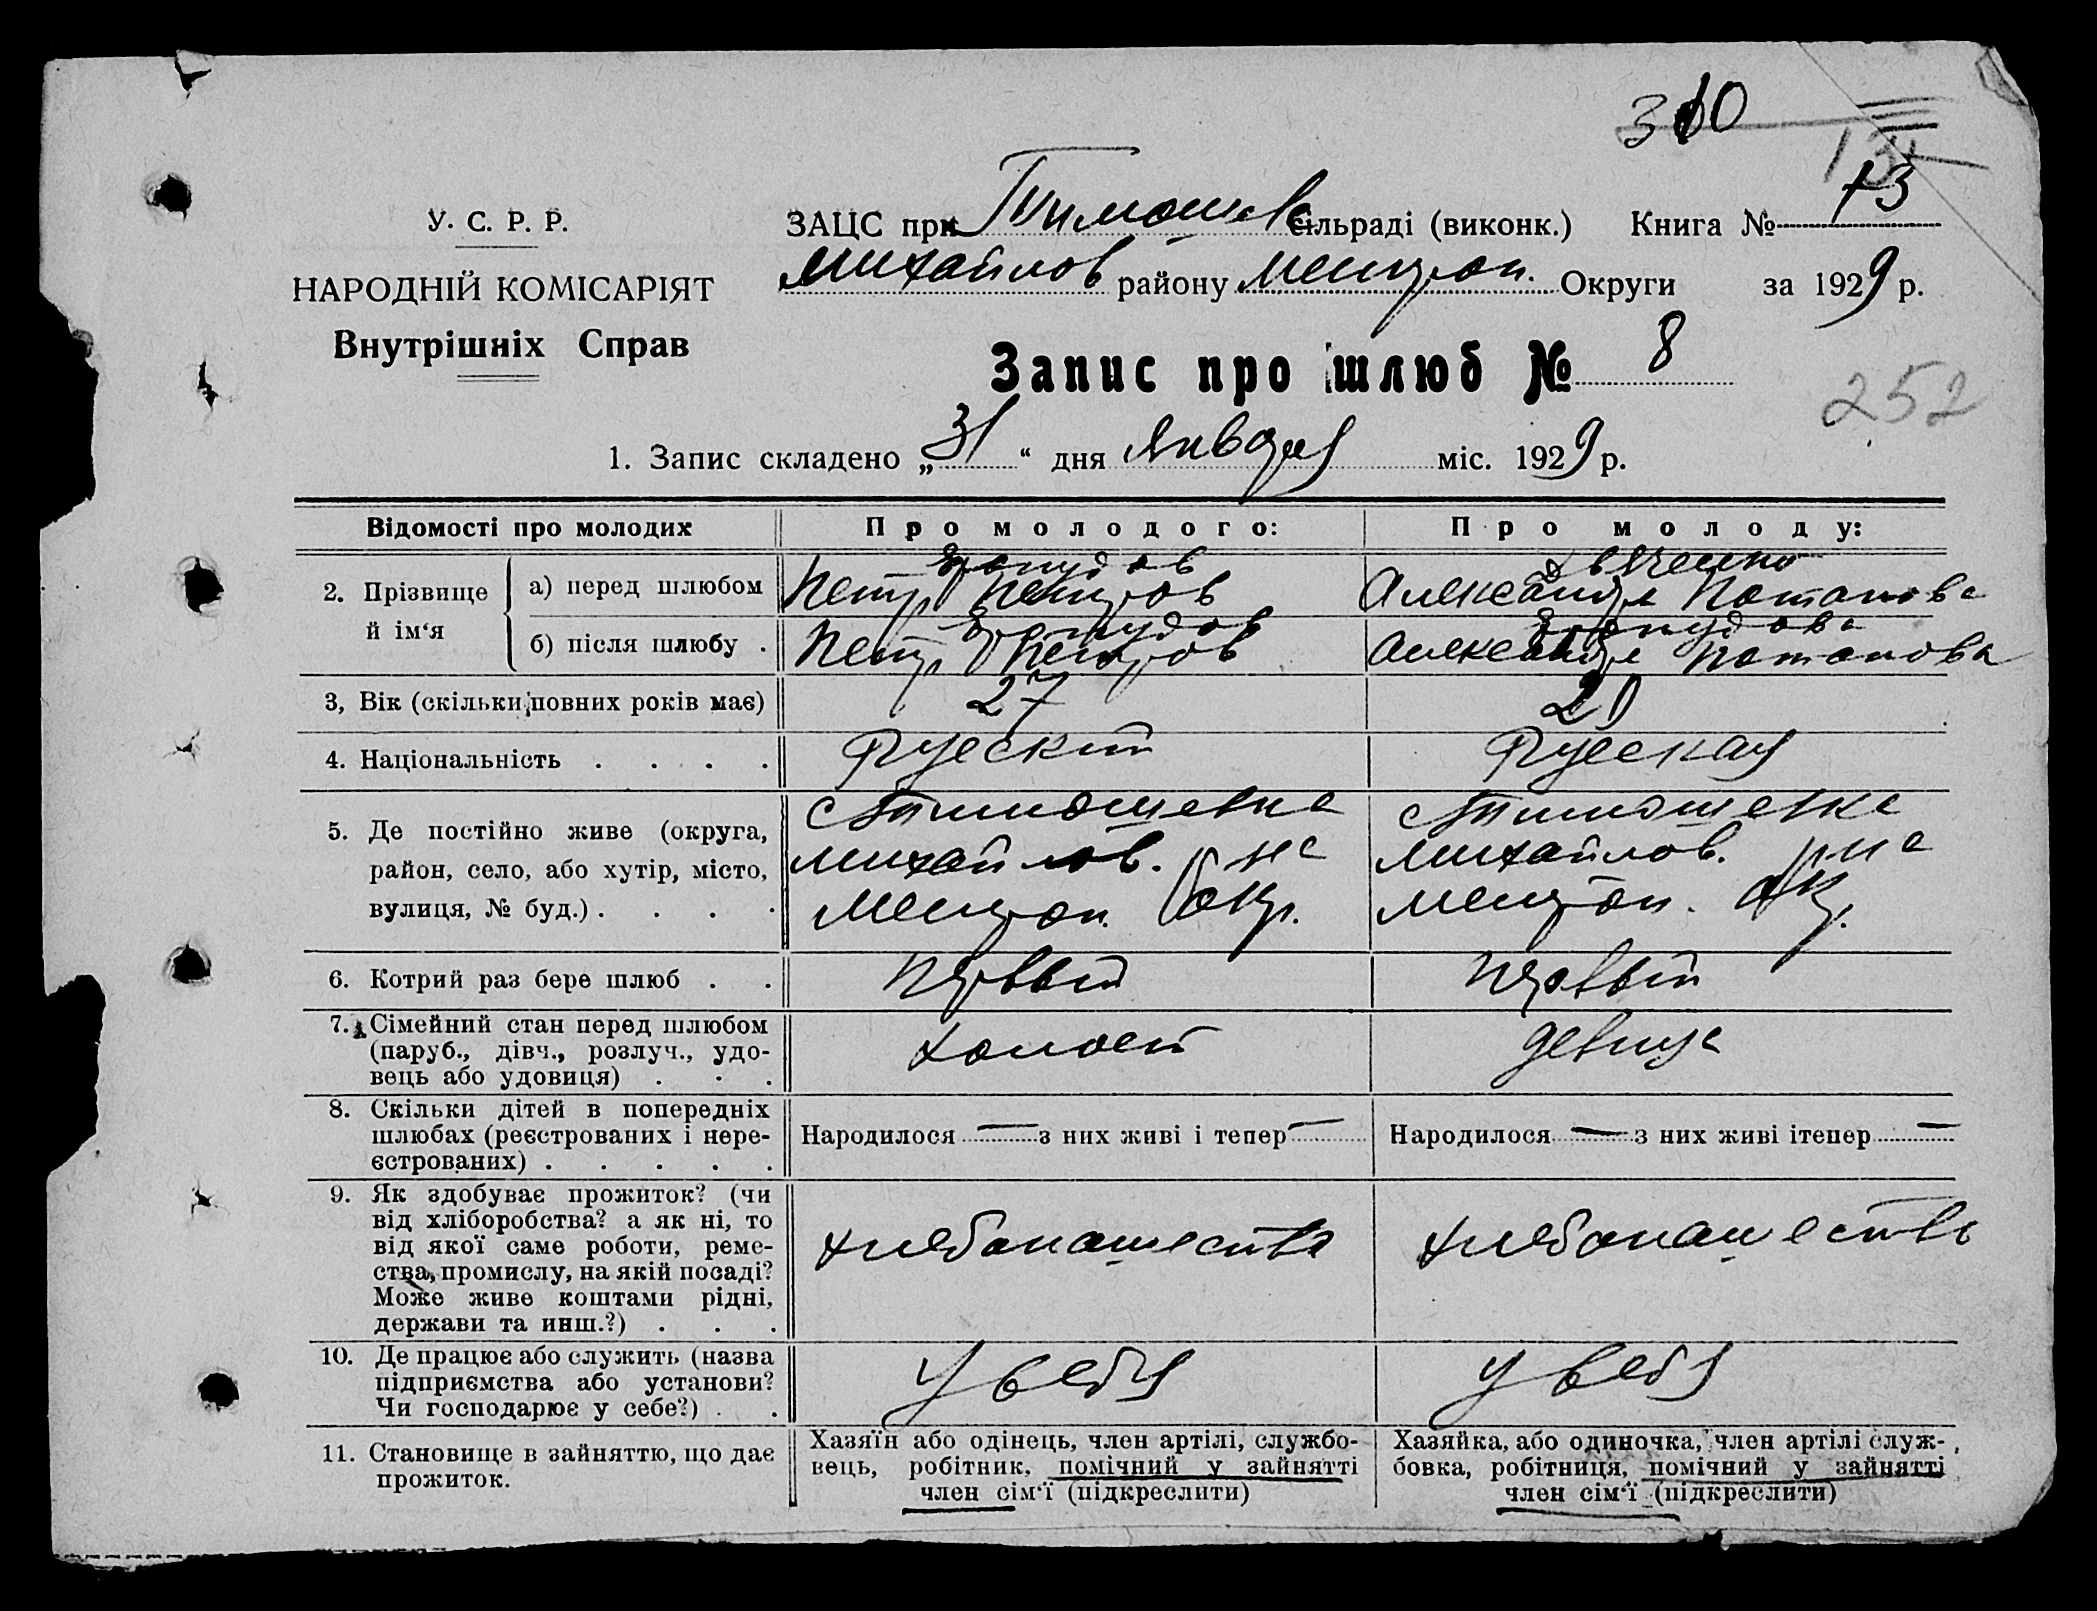 310
131
У. С. Р. Р.
НАРОДНІЙ КОМІСАРІЯТ
Внутрішніх Справ
ЗАЦС при Тимошев сільраді (виконк.) Книга № 73
Михайлов району Мелитоп. Округи за 1929 р.
Запис про шлюб № 8
252
1. Запис складено „31“ дня Января міс. 1929 р.
Відомості про молодих
Про молодого:
Про молоду:
2. Прізвище й ім‘я
а) перед шлюбом
Петр Петров
Александра Потапова
б) після шлюбу .
Петр Петров
Александра Потапова
3, Вік (скільки повних років має)
27
4. Національність . . . .
Русский
Русская
5. Де постійно живе (округа,
район, село, або хутір, місто,
вулиця, № буд.) . . . .
с Тимошевка
Михайлов. р на
Мелитоп. окр.
с Тимошевка
Михайлов. р на
Мелитоп. окр.
6. Котрий раз бере шлюб . .
Первый
Первый
7. Сімейний стан перед шлюбом
(паруб., дівч., розлуч., удо-
вець або удовиця) . . .
холост
девица
8. Скільки дітей в попередніх
шлюбах (реєстрованих і нере-
єстрованих) . . . . .
Народилося — з них живі і тепер —
Народилося — з них живі ітепер —
9. Як здобуває прожиток? (чи
від хліборобства? а як ні, то
від якої саме роботи, реме-
ства, промислу, на якій посаді?
Може живе коштами рідні,
держави та инш.?) . . .
хлебопашество
хлебопашество
10. Де працює або служить (назва
підприємства або установи?
Чи господарює у себе?) . .
У себя
У себя
11. Становище в зайняттю, що дає
прожиток.
Хазяїн або одінець, член артілі, службо-
вець, робітник, помічний у зайнятті
член сім‘ї (підкреслити)
Хазяйка, або одиночка, член артілі служ-
бовка, робітниця, помічний у зайнятті
член сім‘ї (підкреслити)